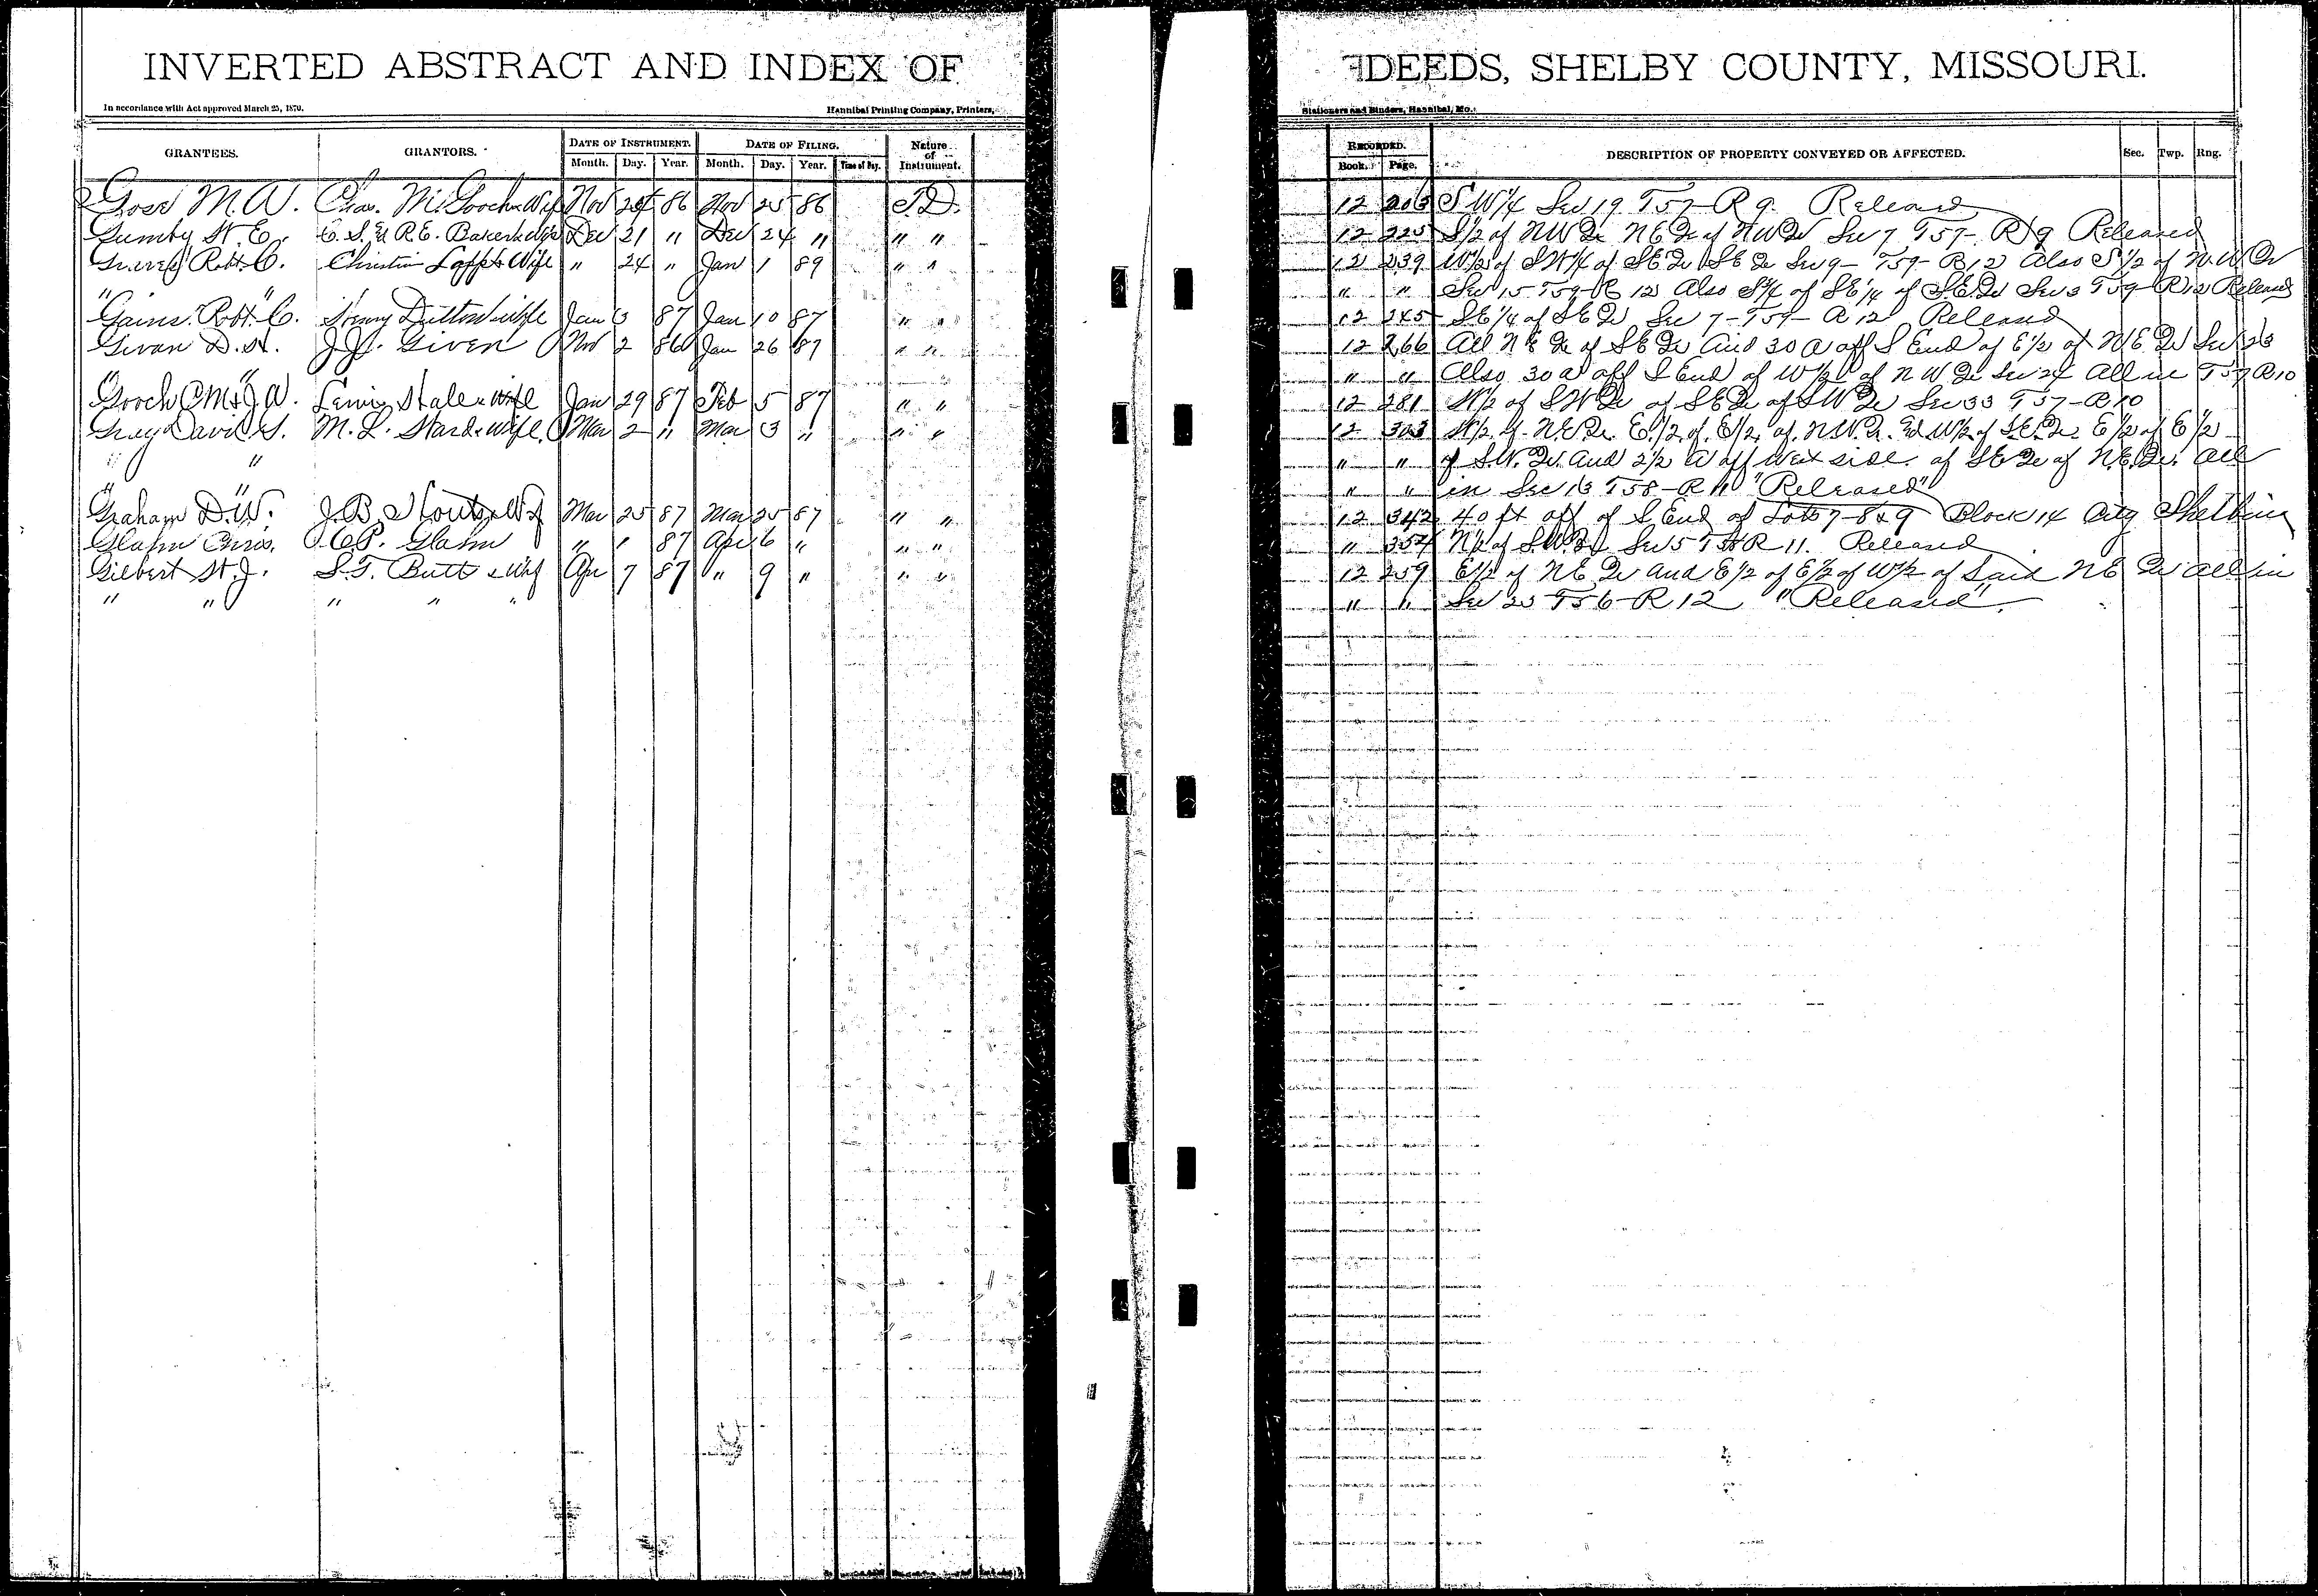 INVERTED ABSTRACT AND INDEX OF DEEDS, SHELBY COUNTY, MISSOURI.
In accordance with Act approved March 25, 1870. Hannibal Printing Company, Printers, Stationers and Binders, Hannibal, Mo.
GRANTEES. GRANTORS. DATE OF INSTRUMENT. DATE OF FILING. Nature of Instrument. RECORDED. DESCRIPTION OF PROPERTY CONVEYED OR AFFECTED. Sec. Twp. Rng.
Month. Day. Year. Month. Day. Year. Time of Day. Book. Page.
M. A. Chas. M. Gooch & Wife Nov 24 86 Nov 25 86 12 203 S W 1/4 Sec 19 T57-R 9. Released
Gumby H. E. C. S. & R. E. Baker & wife Dec 21 " Dec 24 " " " 12 225 S 1/2 of NW Qr NE Qr of NW Qr Sec 7 T57-R 9 Released
Robt. C. Christian & Wife " 24 " Jan 1 89 " " 12 239 W 1/2 of SW 1/4 of SE Qr SE Qr Sec 9-T59-R 12 Also S 1/2 of N.W. Qr
" " " " Sec 15 T59-R 12 Also of SE 1/4 of S.E. Qr Sec 3 T59-R12 Released
Gains. Robt. C. Henry Dutton & wife Jan 3 87 Jan 10 87 " " 12 245 SE 1/4 of SE Qr Sec 7-T59-R 12 Released
Givan D. A. Given Nov 2 86 Jan 26 87 " " 12 266 All NE Qr of SE Qr And 30 a off S End of E 1/2 of NE Qr Sec 23
" " " " Also 30 a off S End of W 1/2 of N W Qr Sec 24 All in T57 R10
Gooch C M & J. A. Lewis Hale & wife Jan 29 87 Feb 5 87 " " 12 281 of of SE Qr of SW Qr Sec 33 T57-R 10
Gray David G. M. L. & wife Mar 2 " Mar 3 " " " 12 303 of N.E. Qr. E. 1/2 of E 1/2 of N.W. Qr. W 1/2 of S.E. Qr E 1/2 of E 1/2
" " " " of S.W. Qr. and 2 1/2 a off West side of SE Qr of N.E. Qr. All
" " " " in Sec 13 T58-R 11 "Released"
Graham D. W. J. B. & Wf Mar 25 87 Mar 25 87 " " 12 342 40 ft off of S End of Lots 7-8 & 9 Block 14 City Shelbina
Glahn Chris. C. P. Glahn " 1 87 Apr 6 " " " " 354 N 1/2 of S.W. Qr Sec 5 T58 R 11. Released
Gilbert H. J. S. T. Butt & Wife Apr 7 87 " 9 " " " 12 259 E 1/2 of NE Qr and E 1/2 of E 1/2 of W 1/2 of Said NE Qr All in
" " " " " " " Sec 23 T56-R 12 "Released".